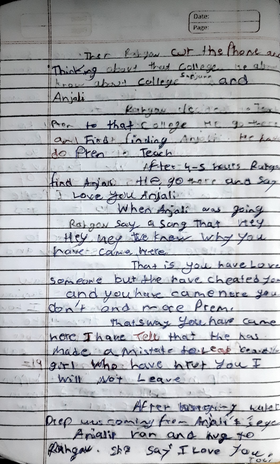 Date:
Page:
Then Rohgan cut the Phone and
Thinking about that College he al
know about college and
Anjali
Rohgan
to that College He go there
and First finding Anjali He ha
do Prem Teach
After 4-5 hours Rohga
find Anjali. He go there and say
I Love you Anjali
When Anjali was going
Rohgan say a song That Hey
Hey Hey we know why you
have came here
That is you have Love
someone but the have cheated you
and you have came here you
don't and more Prem.
Thatsway you have came
here I have Tell that the has
made a mistake to Leat
girl who have hurt you I
will Not Leave
After water
Drop was coming from Anjali's eye
Anjali ran and hug to
Rohgan. she say I Love you